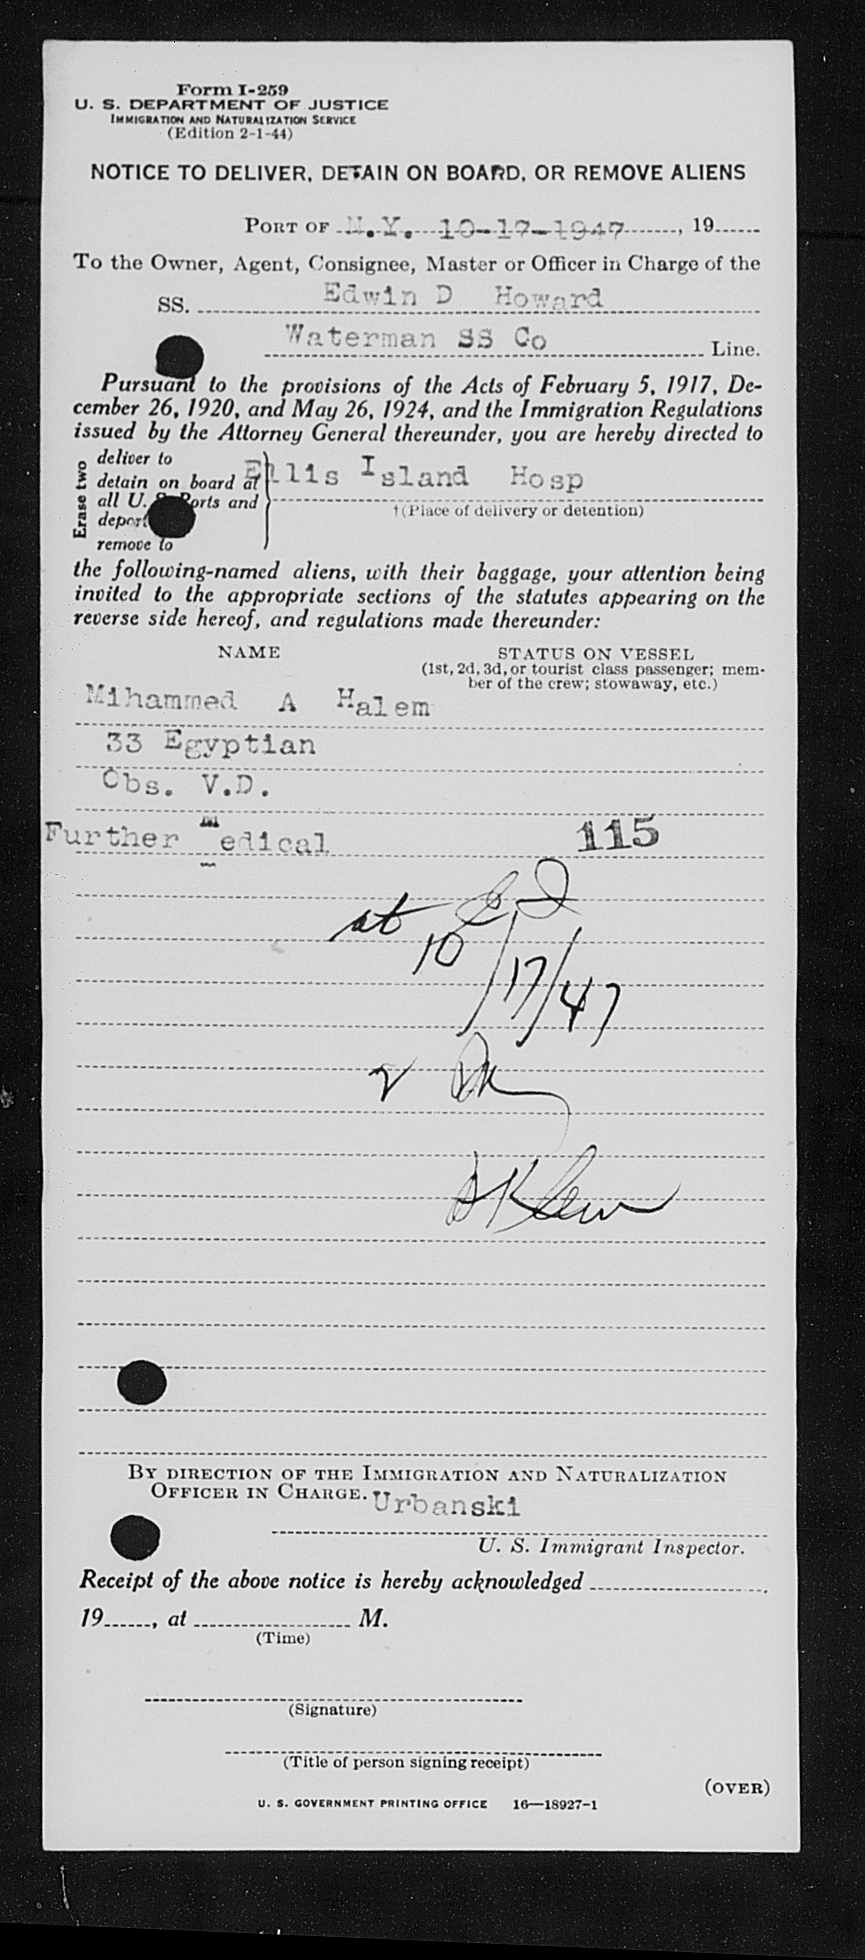 Form I-259
U. S. DEPARTMENT OF JUSTICE
IMMIGRATION AND NATURALIZATION SERVICE
(Edition 2-1-44)
NOTICE TO DELIVER, DETAIN ON BOARD, OR REMOVE ALIENS
PORT OF N.Y. 10-17-1947, 19
To the Owner, Agent, Consignee, Master or Officer in Charge of the
SS. Edwin D Howard
Waterman SS Co Line.
Pursuant to the provisions of the Acts of February 5, 1917, De-
cember 26, 1920, and May 26, 1924, and the Immigration Regulations
issued by the Attorney General thereunder, you are hereby directed to
Erase two
deliver to
detain on board at
all U. S. Ports and
deport
remove to
Ellis Island Hosp
†(Place of delivery or detention)
the following-named aliens, with their baggage, your attention being
invited to the appropriate sections of the statutes appearing on the
reverse side hereof, and regulations made thereunder:
NAME
STATUS ON VESSEL
(1st, 2d, 3d, or tourist class passenger; mem-
ber of the crew; stowaway, etc.)
Mihammed A Halem
33 Egyptian
Obs. V.D.
Further Medical 115
at
10/17/47
By DIRECTION OF THE IMMIGRATION AND NATURALIZATION
OFFICER IN CHARGE. Urbanski
U. S. Immigrant Inspector.
Receipt of the above notice is hereby acknowledged
19, at M.
(Time)
(Signature)
(Title of person signing receipt)
(OVER)
U. S. GOVERNMENT PRINTING OFFICE 16—18927-1